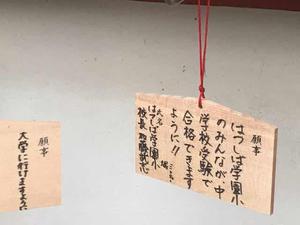 願事
はつしば学園小
のみんなが、中
学校受験で
合格できます
ように!!
氏名
はつしば学園小
校長
願事
大学に行けますように